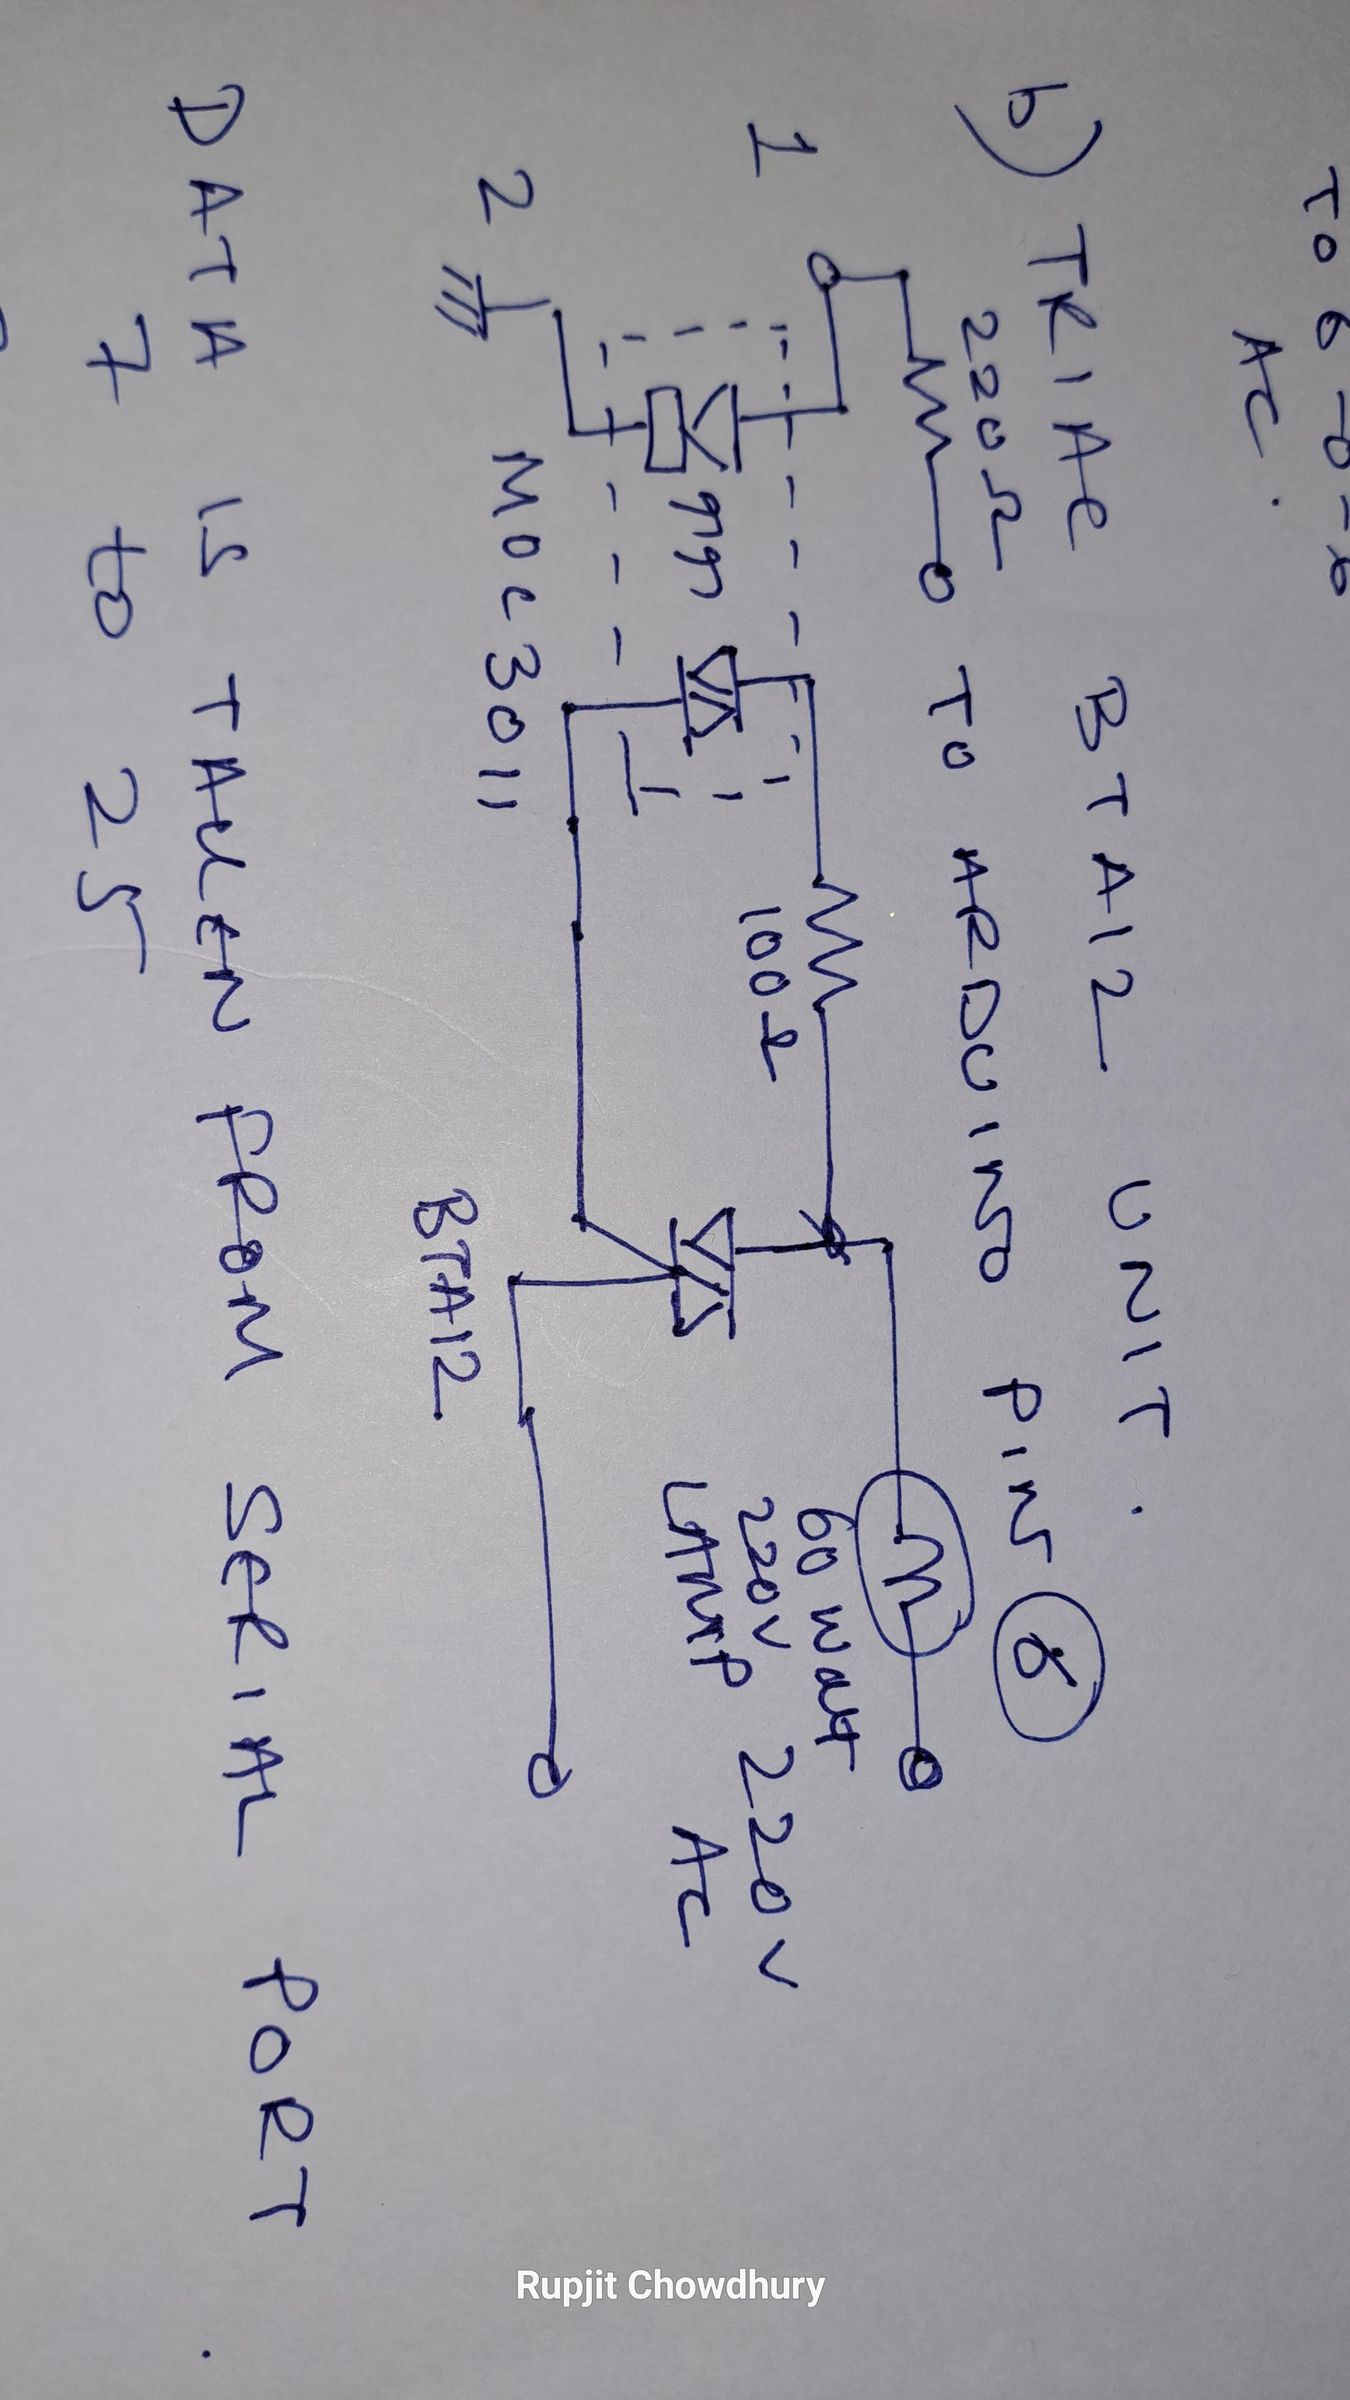 TO 6-0-6
AC.
b) TRIAC BTA12 UNIT.
220Ω TO ARDUINO PIN
1
100Ω
60 watt
220V
LAMP
220V
AC
2
MOC3011
BTA12
DATA IS TAKEN FROM SERIAL PORT.
7 to 25
Rupjit Chowdhury